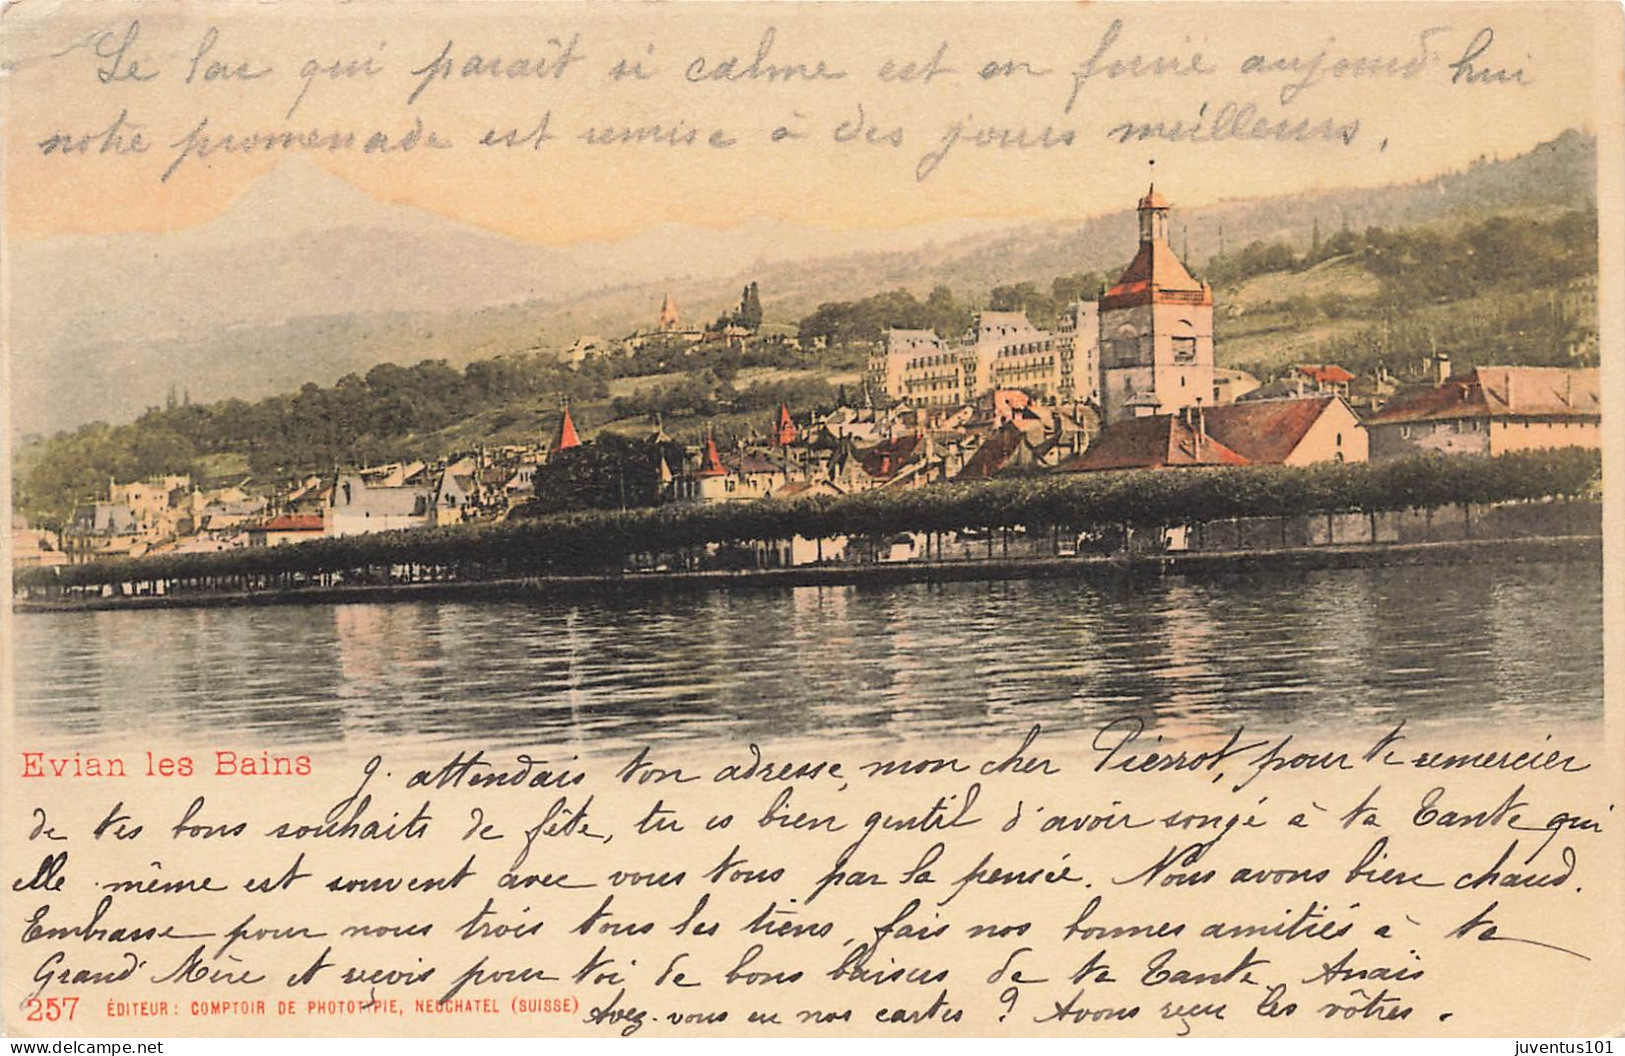 Le lac qui paraît si calme est en furie aujourd'hui
notre promenade est remise à des jours meilleurs,
Evian les Bains
J. attendais ton adresse, mon cher Pierrot, pour te remercier
de tes bons souhaits de fête, tu es bien gentil d'avoir songé à ta Tante qui
elle même est souvent avec vous tous par la pensée. Nous avons bien chaud.
Embrasse pour nous trois tous les tiens, fais nos bonnes amitiés à ta
Grand' Mère et reçois pour toi de bons baisers de ta Tante. Anaïs
257 ÉDITEUR: COMPTOIR DE PHOTOTYPIE, NEUCHATEL (SUISSE)
Avez-vous eu nos cartes ? Avons reçu les vôtres.
juventus101